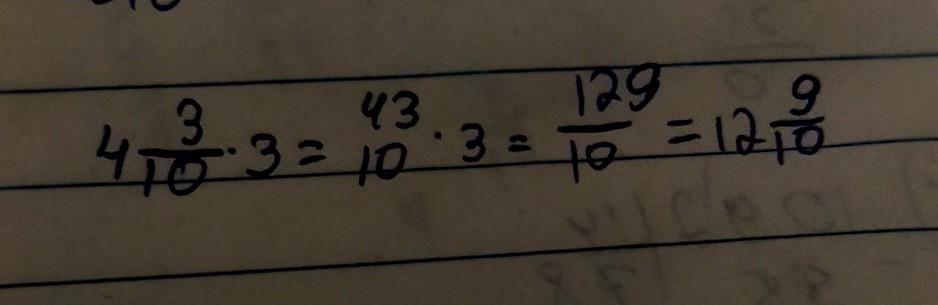 4 3/10 · 3 = 43/10 · 3 = 129/10 = 12 9/10